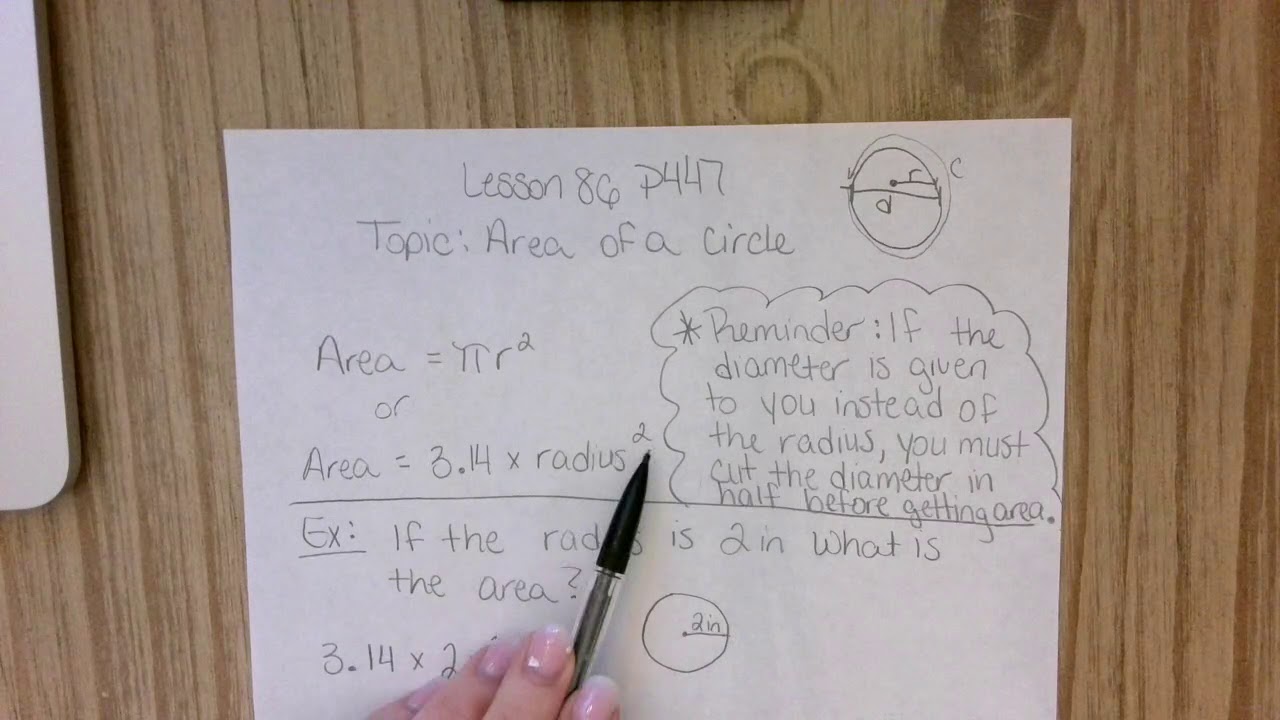 Lesson 86 p447
Topic: Area of a circle
r
d
C
Area = πr²
or
Area = 3.14 x radius²
* Reminder: If the
diameter is given
to you instead of
the radius, you must
cut the diameter in
half before getting area.
Ex: If the is 2in What is
the area?
2in
3.14 x 2